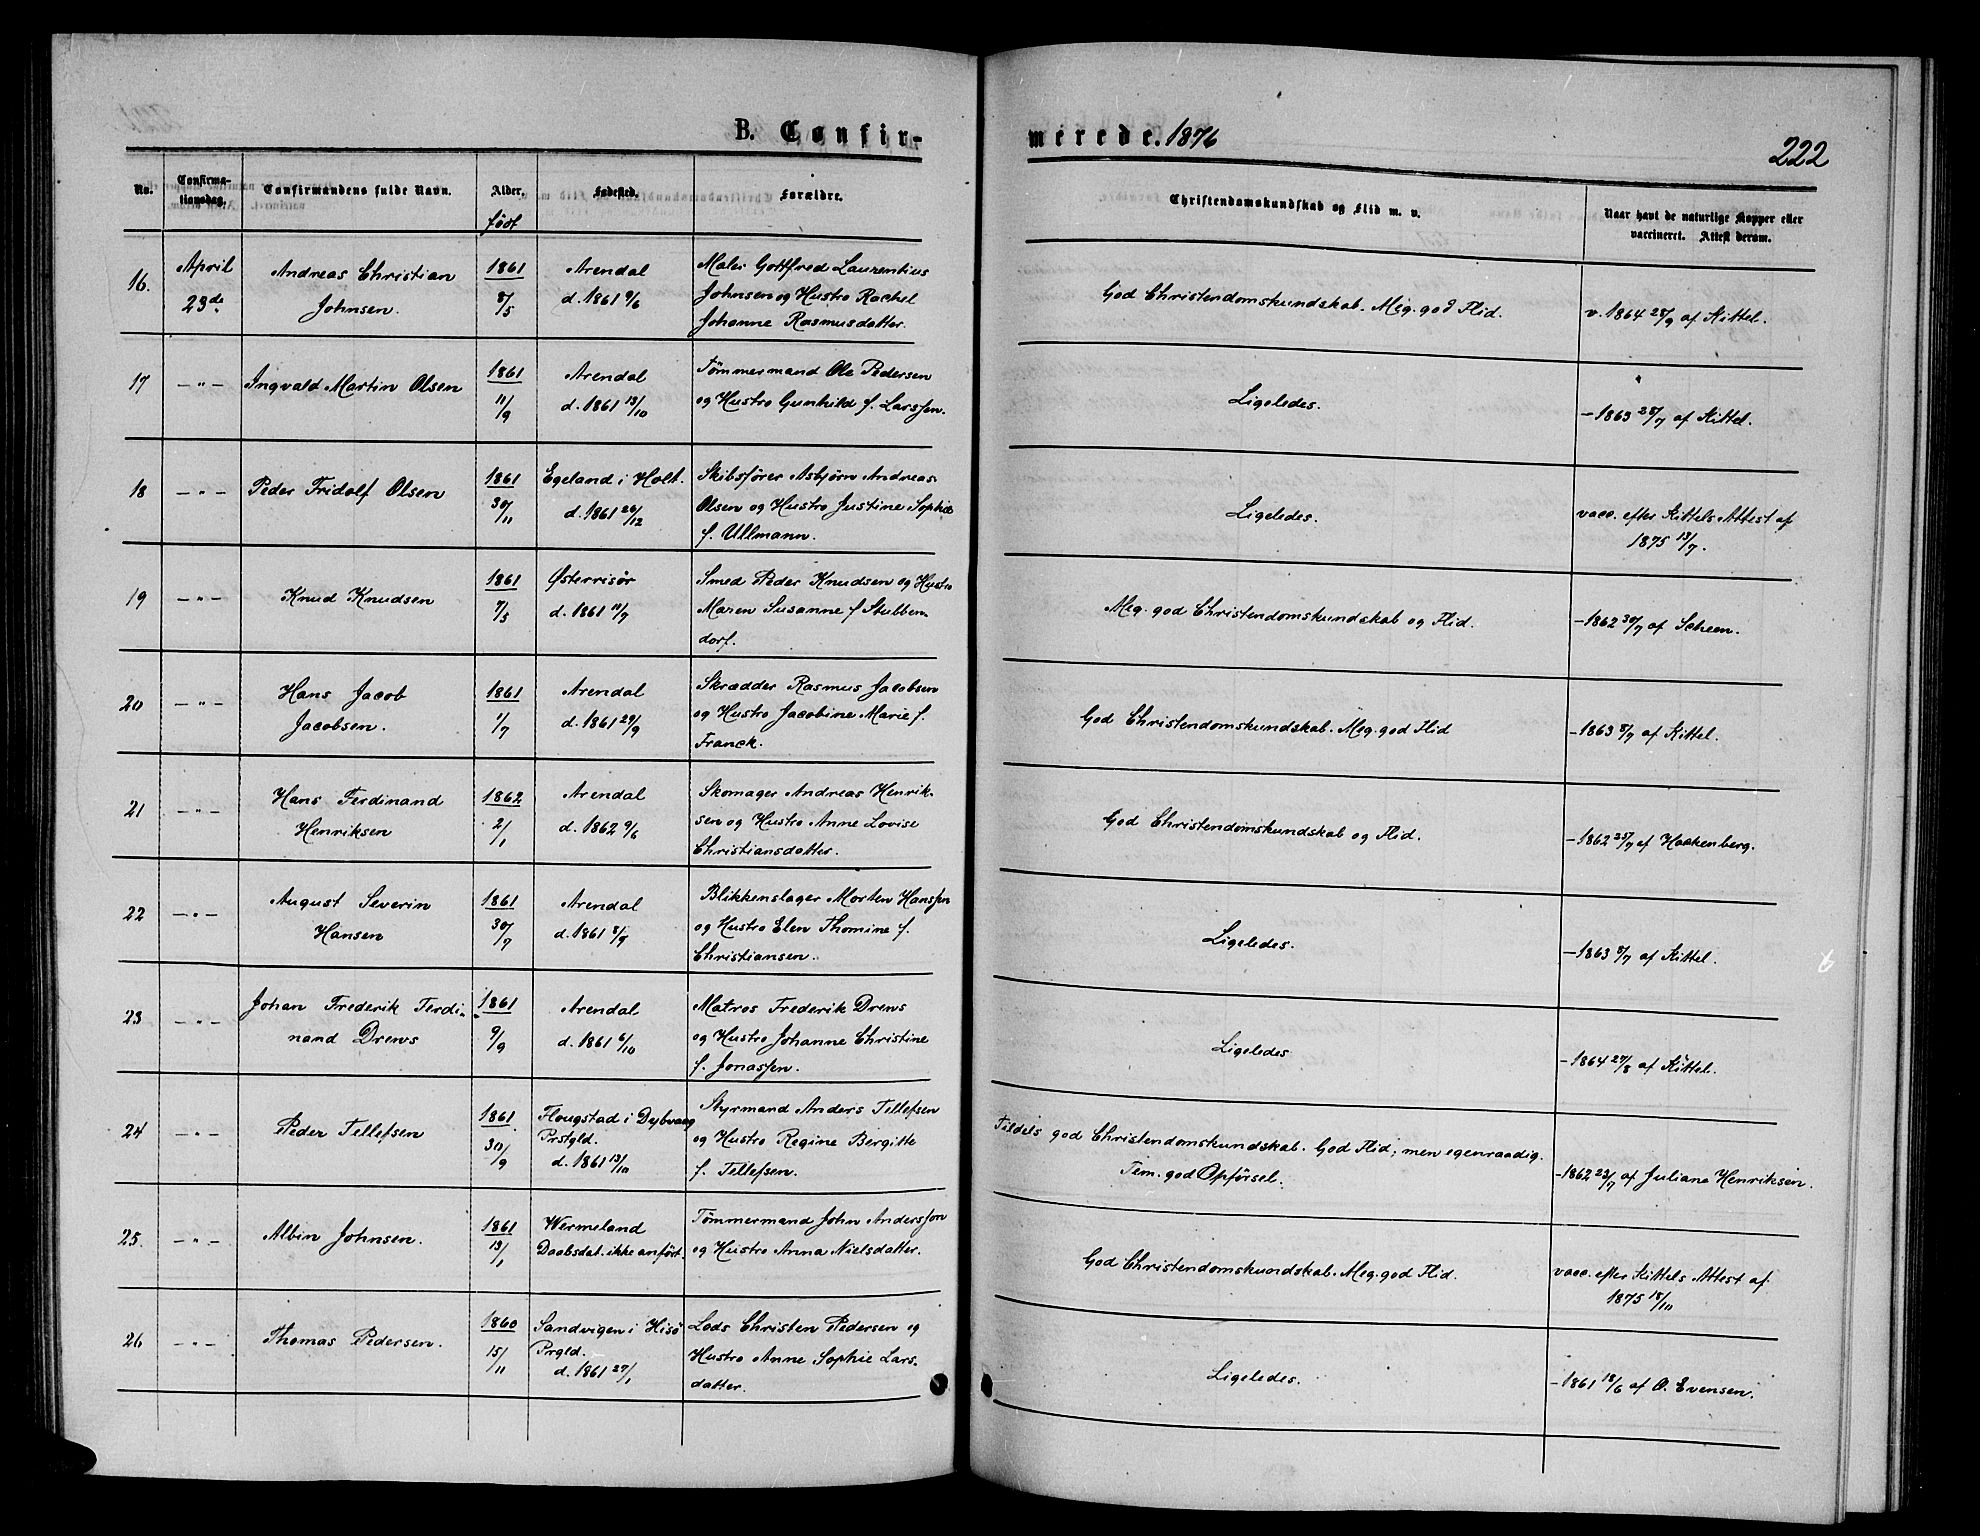 B. Confir-
merede. 1876
222
No.
Confirma-
tionsdag.
Confirmandens fulde Navn.
Alder,
født
Fødested.
Forældre.
Christendomskundskab og Flid m. v.
Naar havt de naturlige Kopper eller
vaccineret. Attest derom.
16.
April
23de
Andreas Christian
Johnsen.
1861
8/5
Arendal
d. 1861 9/6
Maler Gottfred Laurentius
Johnsen og Hustro Rachel
Johanne Rasmusdatter.
God Christendomskundskab. Meg. god Flid.
v. 1864 28/9 af Kittel.
17
— " —
Ingvald Martin Olsen
1861
11/9
Arendal
d. 1861 13/10
Tømmermand Ole Pedersen
og Hustro Gunhild f. Larssen.
Ligeledes.
— 1863 28/7 af Kittel.
18
— " —
Peder Fridolf Olsen
1861
30/11
Egeland i Holt.
d. 1861 26/12
Skibsfører Asbjørn Andreas
Olsen og Hustro Justine Sophie
f. Ullmann.
Ligeledes.
vacc. efter Kittels Attest af
1875 13/7.
19
— " —
Knud Knudsen
1861
7/5
Østerrisør
d. 1861 11/7
Smed Peder Knudsen og Hustro
Maren Susanne f. Stubben-
dorf.
Meg. god Christendomskundskab og Flid.
— 1862 30/7 af Scheen.
20
— " —
Hans Jacob
Jacobsen.
1861
1/7
Arendal
d. 1861 29/9
Skrædder Rasmus Jacobsen
og Hustro Jacobine Marie f.
Franck.
God Christendomskundskab. Meg. god Flid
— 1863 8/7 af Kittel.
21
— " —
Hans Ferdinand
Henriksen
1862
2/1
Arendal
d. 1862 9/6
Skomager Andreas Henrik-
sen og Hustro Anne Lovise
Christiansdatter.
God Christendomskundskab og Flid.
— 1862 25/7 af Hackenberg.
22
— " —
August Severin
Hansen
1861
30/7
Arendal
d. 1861 8/9
Blikkenslager Morten Hanssen
og Hustro Elen Thomine f.
Christiansen.
Ligeledes.
— 1863 8/7 af Kittel.
23
— " —
Johan Frederik Ferdi-
nand Drews
1861
9/9
Arendal
d. 1861 6/10
Matros Frederik Drews
og Hustro Johanne Christine
f. Jonassen.
Ligeledes
— 1864 27/8 af Kittel.
24
— " —
Peder Tellefsen
1861
30/9
Flougstad i Dybvaag
Prstgld.
d. 1861 13/10
Styrmand Anders Tellefsen
og Hustro Regine Bergitte
f. Tellefsen.
Tildels god Christendomskundskab. God Flid; men egenraadig.
Tem. god Opførsel.
— 1862 23/7 af Juliane Henriksen.
25.
— " —
Albin Johnsen.
1861
13/1
Wermeland
Daabsdat. ikke anført.
Tømmermand John Andersson
og Hustro Anna Nielsdatter.
God Christendomskundskab. Meg. god Flid.
vacc. efter Kittels Attest af
1875 18/10
26
— " —
Thomas Pedersen.
1860
15/11
Sandvigen i Hisö
Prgld.
d. 1861 27/1
Lods Christen Pedersen og
Hustro Anne Sophie Lars-
datter.
Ligeledes.
— 1861 18/6 af O. Evensen.